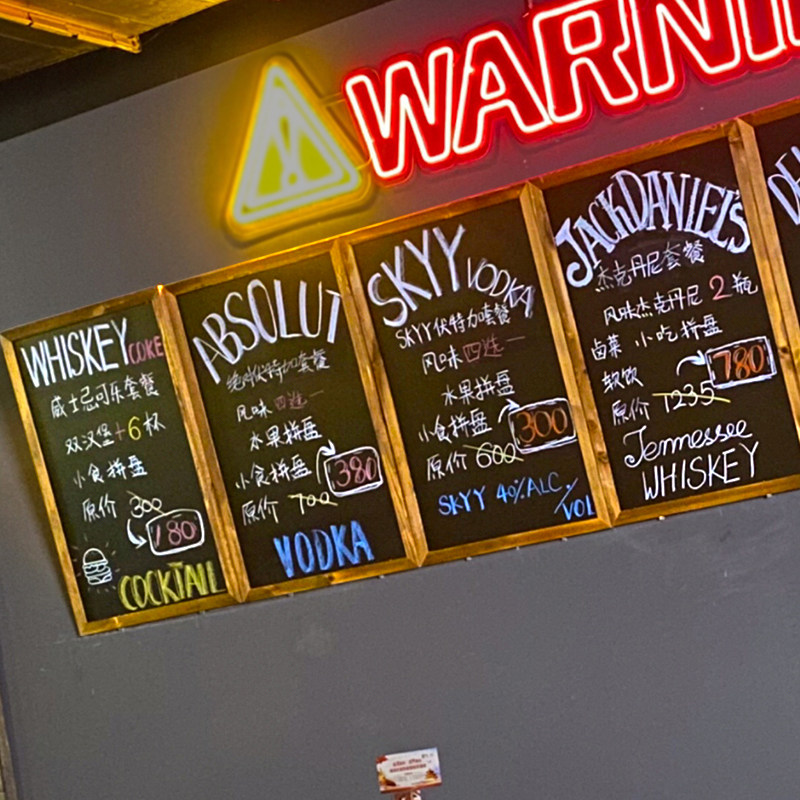 WARNI
WHISKEY COKE
威士忌可乐套餐
双汉堡+6杯
小食拼盘
原价 300
180
COCKTAIL
ABSOLUT
绝对伏特加套餐
风味四选一
水果拼盘
小食拼盘
380
原价 700
VODKA
SKYY VODKA
SKYY伏特加套餐
风味四选一
水果拼盘
小食拼盘
300
原价 600
SKYY 40%ALC./VOL
JACKDANIEL'S
杰克丹尼套餐
风味杰克丹尼 2瓶
卤菜 小吃拼盘
软饮
780
原价 1235
Jennessee
WHISKEY